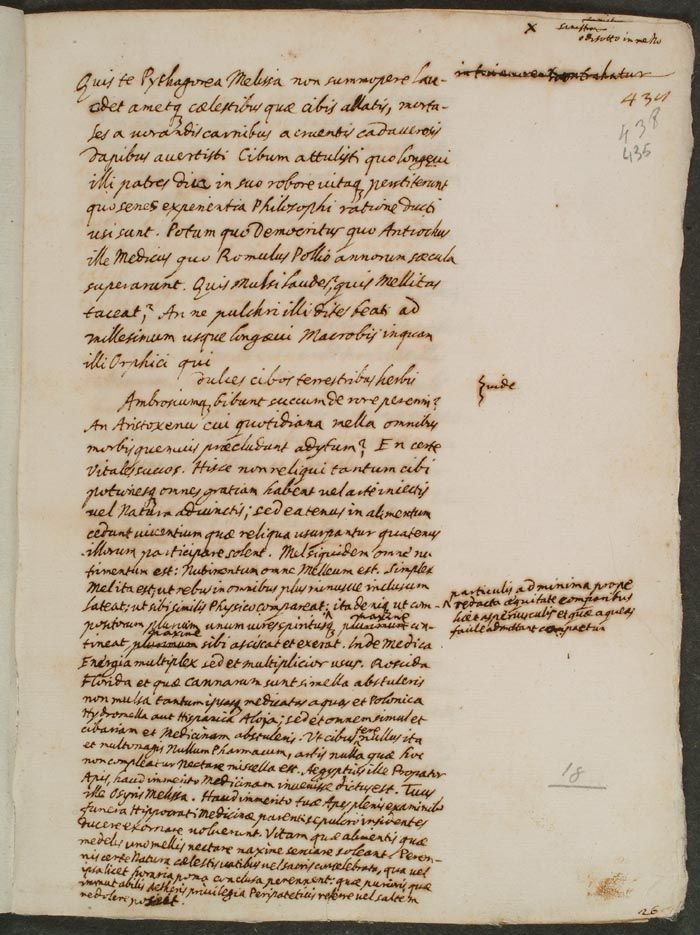 x
sinistra
di sotto in nero
434
438
435
Quis te Pythagorea Melissa non summopere lau-
det ametq cælestibus quæ cibis allatis, morta-
les a vorandis carnibus a cruentis cadaverosis
Dapibus avertisti Cibum attulisti quo longævi
illi patres diu in suo robore vitaq perstiterunt
quo senes experientia Philosophi ratione ducti
usi sunt. Potum quo Democritus quo Antiochus
ille Medicus quo Romulus Pollio annorum sæcula
superarunt. Quis Mulsi laudes, quis Mellitas
taceat? An ne pulchri illi dites beati ad
millesimum usque longævi Macrobij inquam
illi Orphici qui
dulces cibos terrestribus herbis
vide
Ambrosiumq bibunt succum de rore perenni?
An Aristoxenu cui quotidiana mella omnibus
morbis quenvis præcludunt adytum? En certe
vitales sucos. Hisce non reliqui tantum cibi
potionesq omnes gratiam habent vel arte iniectis
vel Natura adiunctis; sed eatenus in alimentum
cedunt viventium quæ reliqua usurpantur quatenus
illorum participare solent. Mel siquidem omne nu-
trimentum est: Nutrimentum omne Melleum est. Simplex
Mel ita est, ut rebus in omnibus plus minusve inclusum
lateat; ut sibi similis Physico compareat; ita deniq ut com-
particulis ad minima prope
redacta æquitate comparibus
hæc asperiusculis et quæ aqueas
facile admittant compactum
positorum plurium unum vires spiritusq maxime con-
tineat, maxime sibi asciscat et exerat. Inde Medica
Energia multiplex sed et multiplicior usus. Roscida
Florida et quæ Cannarum sunt si mella abstuleris
non mulsa tantum medicatas aquas et Polonica
Hydromella aut Hispanica Aloja; sed et omnem simul et
cibariam et Medicinam abstuleris. Ut cibus fere nullus ita
et multo magis Nullum Pharmacum, artis nulla quæ hoc
non compleatur Nectare miscella est. Aegyptius ille Propator
Apis, haud immerito Medicinam invenisse dictus est. Tuus
ille Osyris Melissa. Haud immerito tuæ Apes plenis examinibus
funera Hippocrati Medicinæ parenti sepulcri insidentes
ducere exornare voluerunt. Vitam quæ alimentis quæ
medelis uno mellis nectare maxime seniare soleant. Peren-
nis certe Natura cælestis vatibus vel sacris concelebrato, qua vel
ipsa licet pomaria poma conclusa perennent: quæ purioris, quæ
immutabilis Aetheris privilegia Peripateticis referre vel saltem
redolere
18
26